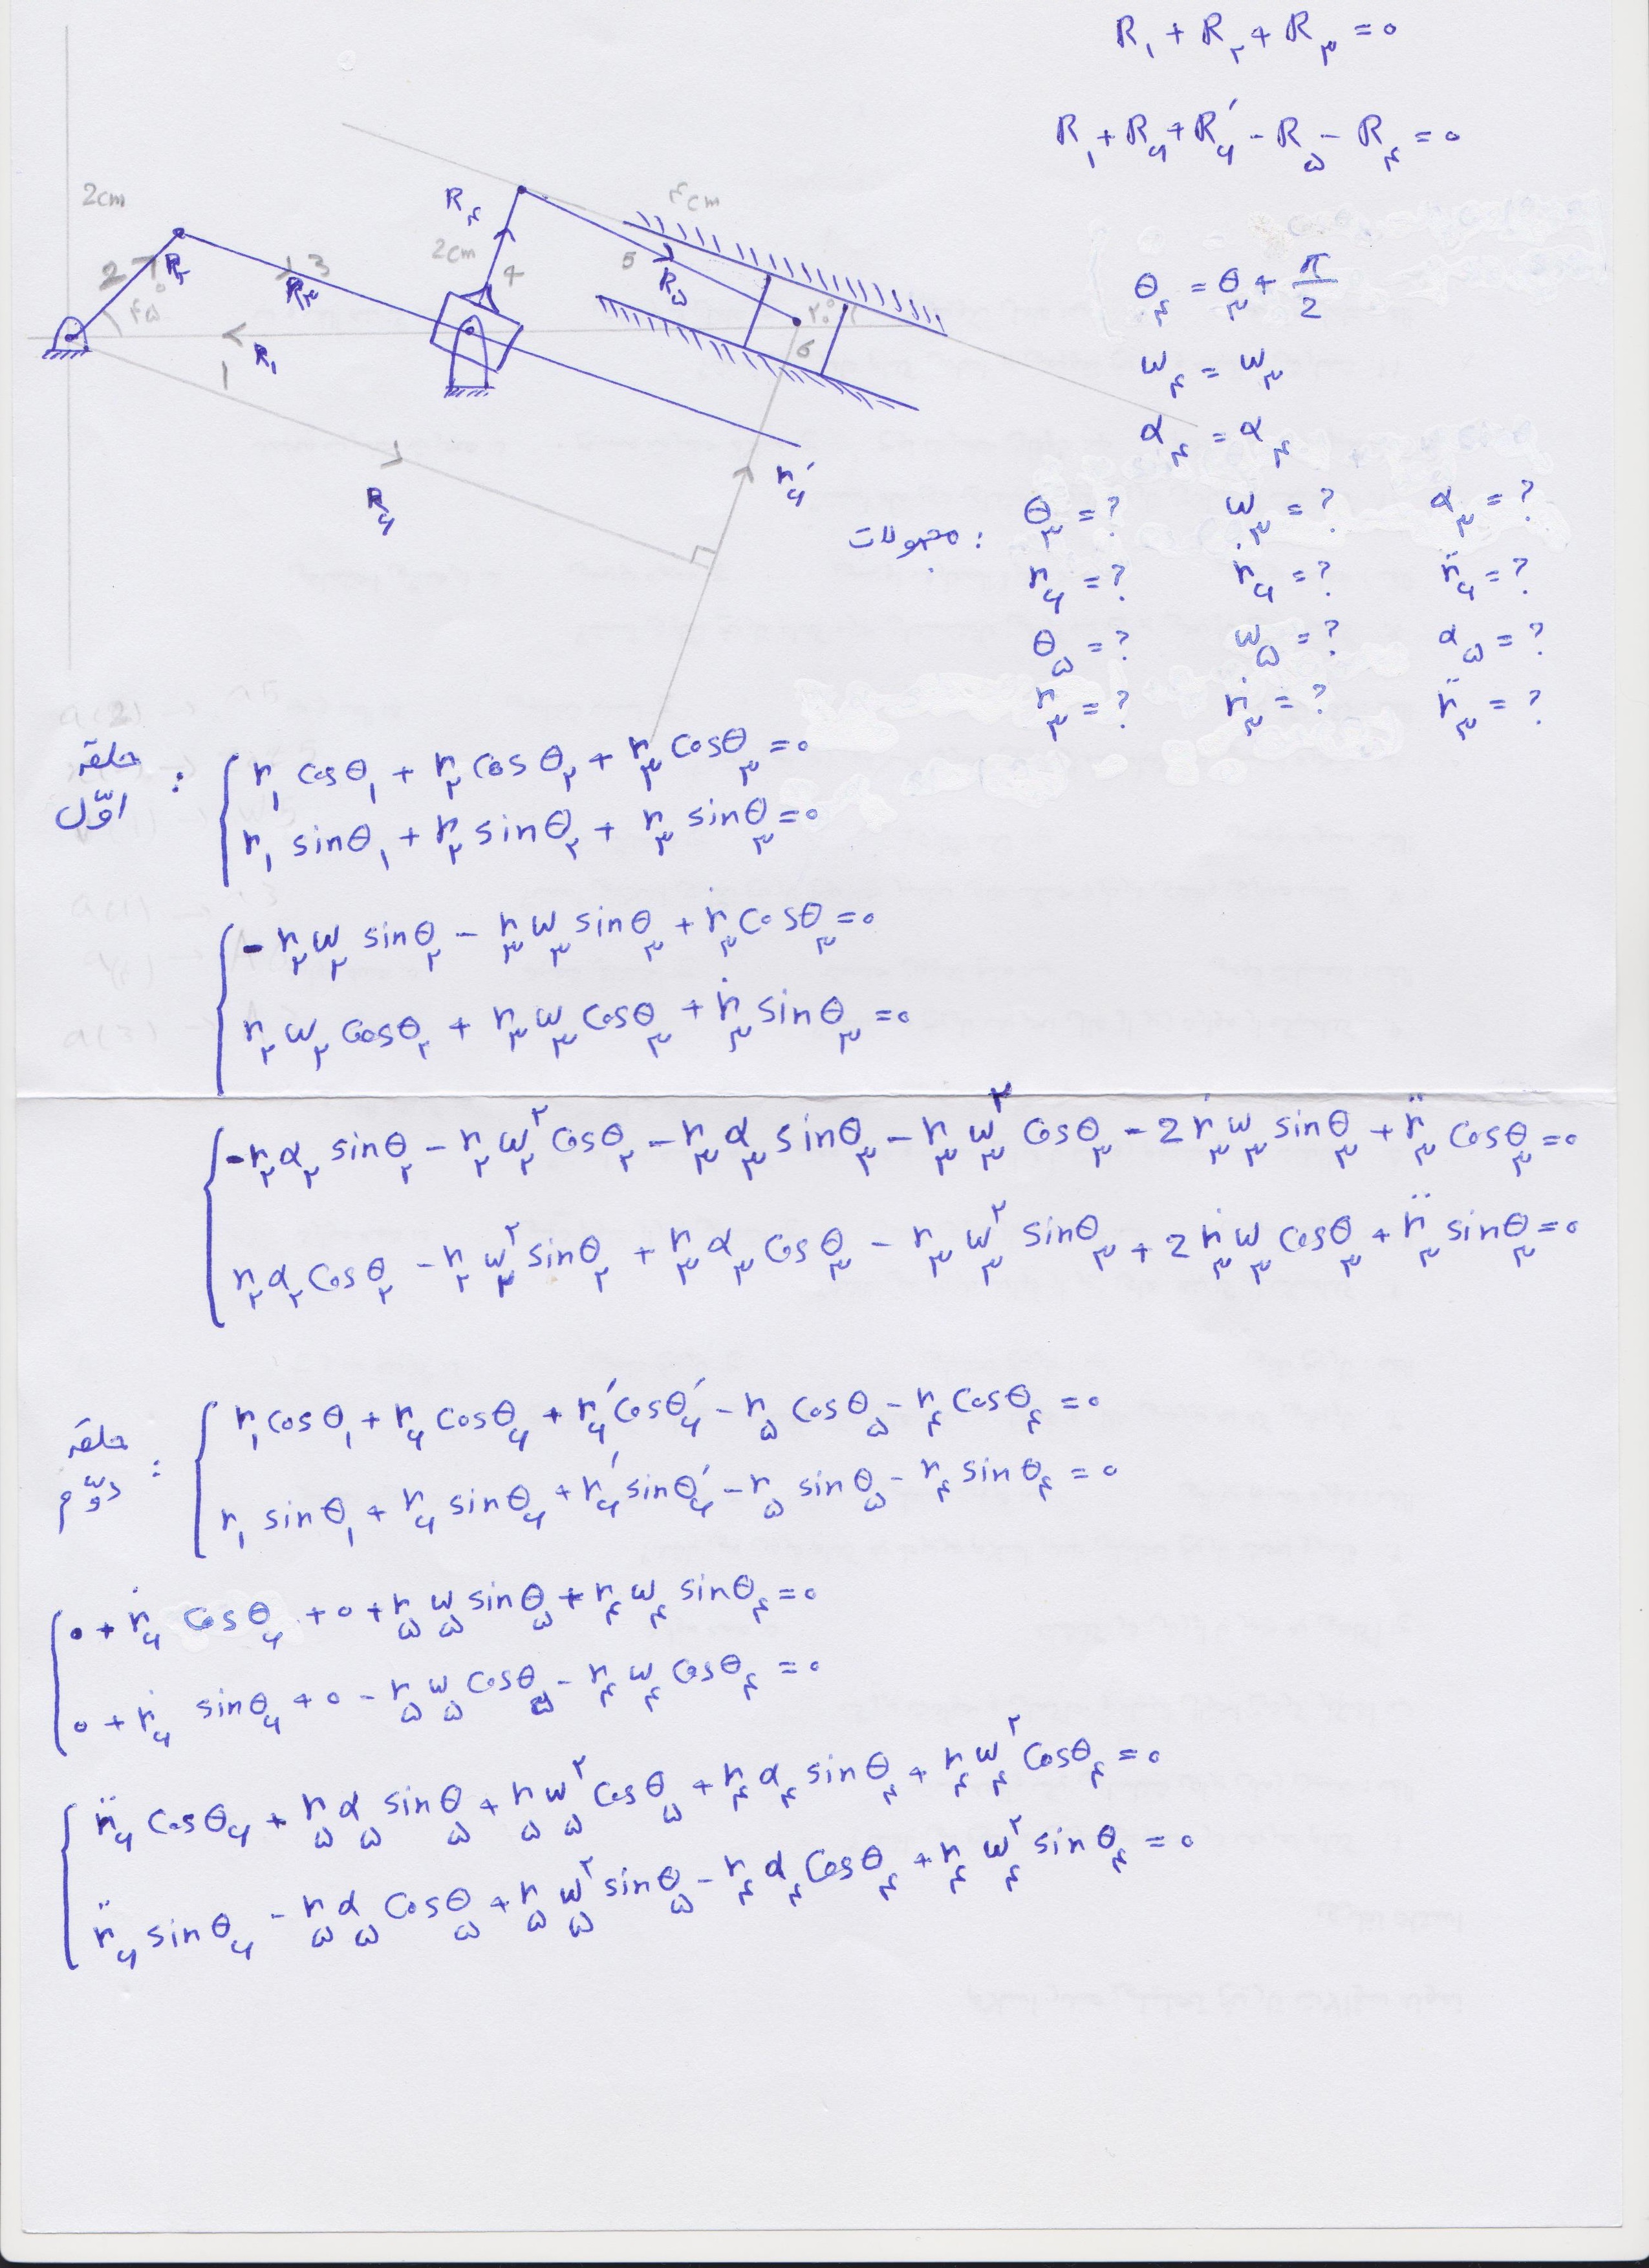 R۱ + R۲ + R۳ = 0
R۱ + R۶ + R۶′ - R۵ - R۴ = 0
2cm
۴cm
R۴
2cm
4
5
R۵
2
R۲
3
R۳
۴۵°
۲۰°
6
R۱
1
R۶
r۶′
θ۴ = θ۳ + π/2
ω۴ = ω۳
α۴ = α۴
مجهولات :
θ۳ = ? ω۳ = ? α۳ = ?
r۶ = ? ṙ۶ = ? r̈۶ = ?
θ۵ = ? ω۵ = ? α۵ = ?
r۳ = ? ṙ۳ = ? r̈۳ = ?
حلقه اوّل :
r۱ cosθ۱ + r۲ cosθ۲ + r۳ cosθ۳ = 0
r۱ sinθ۱ + r۲ sinθ۲ + r۳ sinθ۳ = 0
- r۲ ω۲ sinθ۲ - r۳ ω۳ sinθ۳ + ṙ۳ cosθ۳ = 0
r۲ ω۲ cosθ۲ + r۳ ω۳ cosθ۳ + ṙ۳ sinθ۳ = 0
- r۲ α۲ sinθ۲ - r۲ ω۲^۲ cosθ۲ - r۳ α۳ sinθ۳ - r۳ ω۳^۲ cosθ۳ - 2 ṙ۳ ω۳ sinθ۳ + r̈۳ cosθ۳ = 0
r۲ α۲ cosθ۲ - r۲ ω۲^۲ sinθ۲ + r۳ α۳ cosθ۳ - r۳ ω۳^۲ sinθ۳ + 2 ṙ۳ ω۳ cosθ۳ + r̈۳ sinθ۳ = 0
حلقه دوّم :
r۱ cosθ۱ + r۶ cosθ۶ + r۶′ cosθ۶′ - r۵ cosθ۵ - r۴ cosθ۴ = 0
r۱ sinθ۱ + r۶ sinθ۶ + r۶′ sinθ۶′ - r۵ sinθ۵ - r۴ sinθ۴ = 0
0 + ṙ۶ cosθ۶ + 0 + r۵ ω۵ sinθ۵ + r۴ ω۴ sinθ۴ = 0
0 + ṙ۶ sinθ۶ + 0 - r۵ ω۵ cosθ۵ - r۴ ω۴ cosθ۴ = 0
r̈۶ cosθ۶ + r۵ α۵ sinθ۵ + r۵ ω۵^۲ cosθ۵ + r۴ α۴ sinθ۴ + r۴ ω۴^۲ cosθ۴ = 0
r̈۶ sinθ۶ - r۵ α۵ cosθ۵ + r۵ ω۵^۲ sinθ۵ - r۴ α۴ cosθ۴ + r۴ ω۴^۲ sinθ۴ = 0